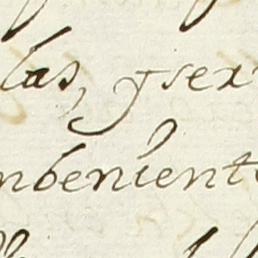 las, y sex
nbenient